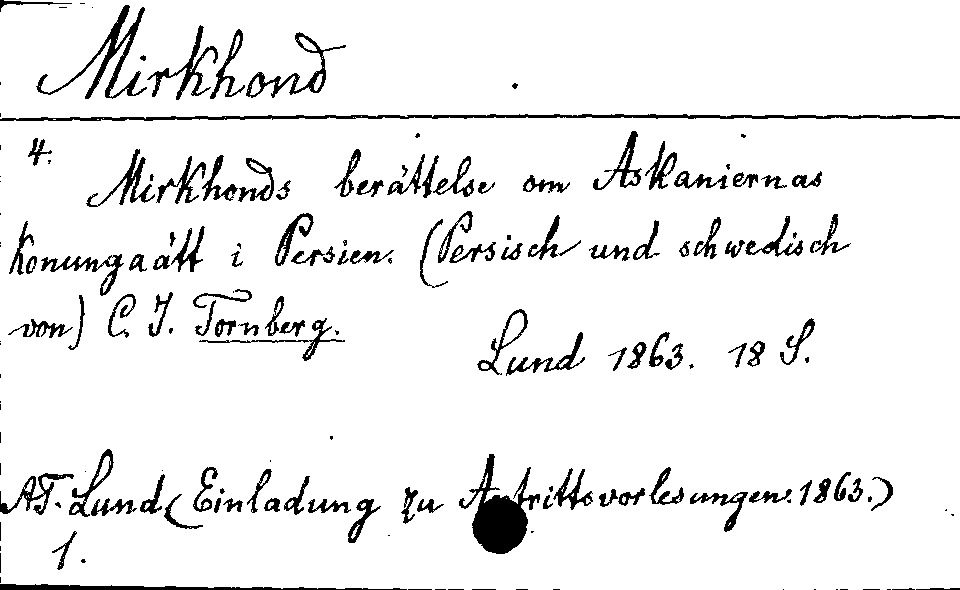 Mirkhond
4.
Mirkhonds berättelse om Askaniernas
Konungaätt i Persien. (Persisch und schwedisch
von) C. J. Tornberg.
Lund 1863. 18 S.
AT. Lund (Einladung zu Antrittsvorlesungen. 1863.)
1.